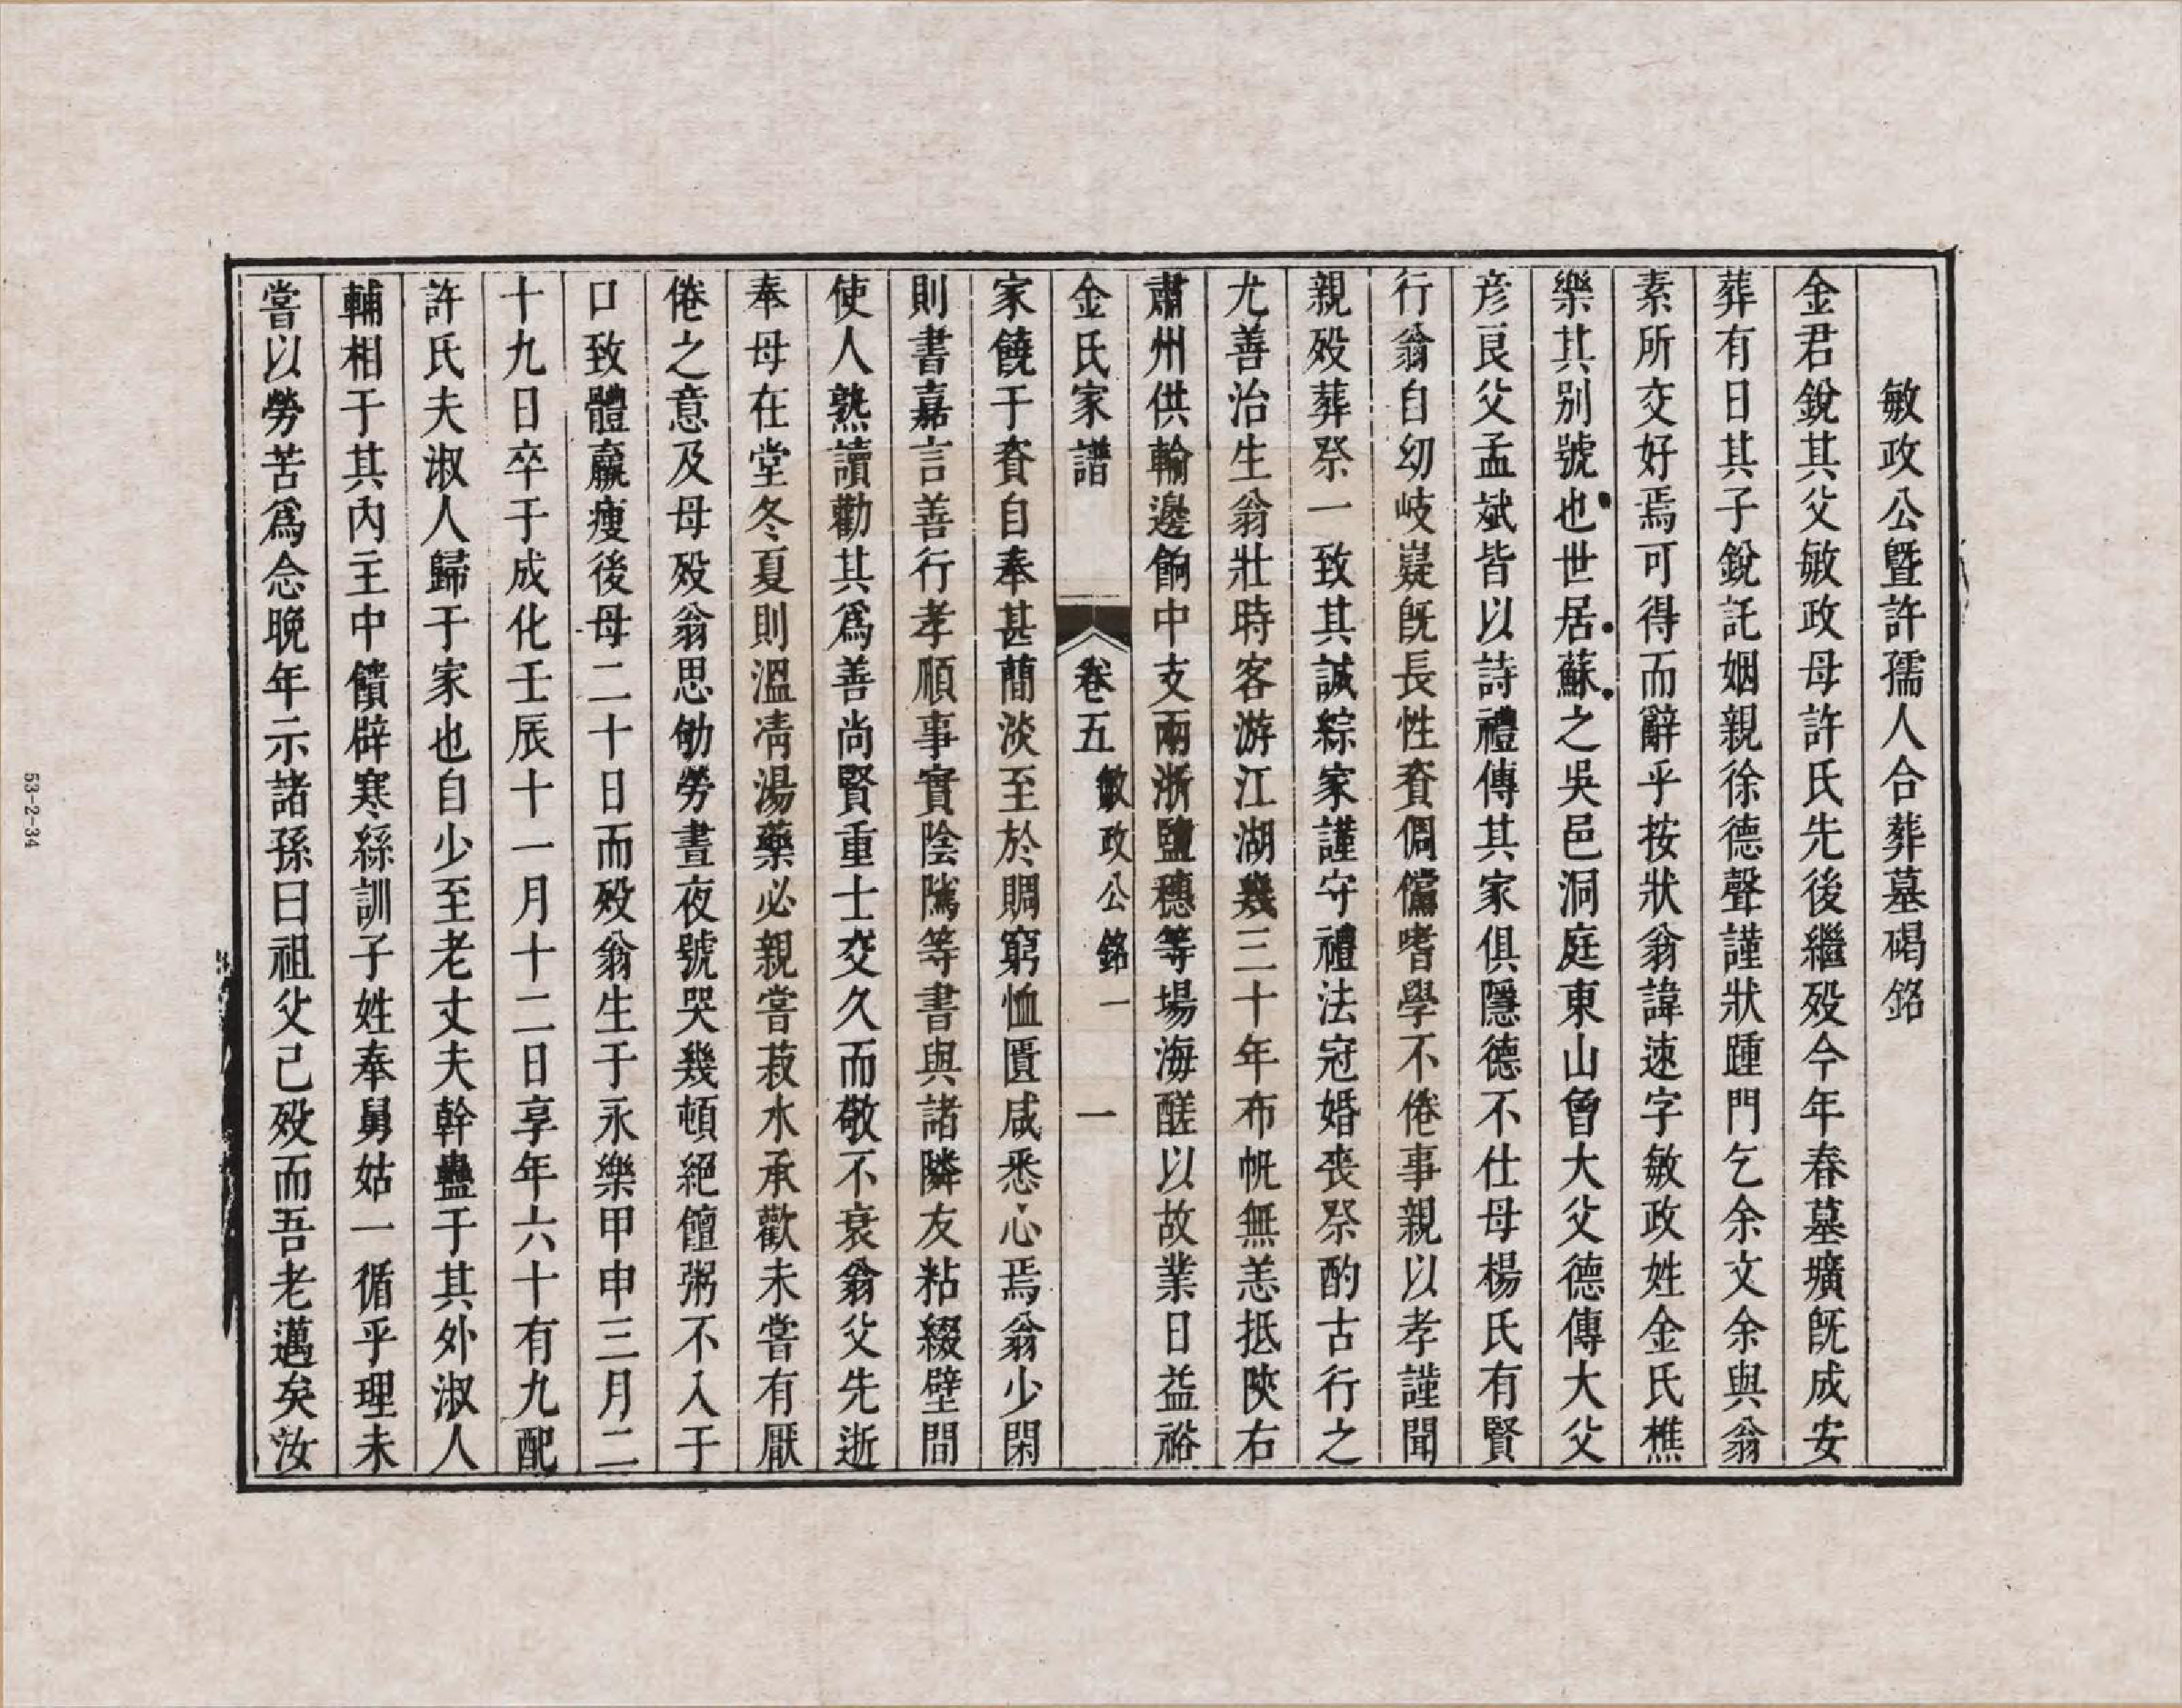 敏政公曁許孺人合葬墓碣銘
金君銳其父敏政母許氏先後繼歿今年春墓壙旣成安
葬有日其子銳託姻親徐德聲謹狀踵門乞余文余與翁
素所交好焉可得而辭乎按狀翁諱速字敏政姓金氏樵
樂其別號也世居蘇之吳邑洞庭東山曾大父德傳大父
彦良父孟斌皆以詩禮傳其家俱隱德不仕母楊氏有賢
行翁自幼岐嶷旣長性資倜儻嗜學不倦事親以孝謹聞
親歿葬祭一致其誠綜家謹守禮法冠婚喪祭酌古行之
尤善治生翁壯時客游江湖幾三十年布帆無恙抵陝右
肅州供輸邊餉中支兩浙鹽穗等場海醝以故業日益裕
金氏家譜 卷五 敏政公銘一 一
家饒于資自奉甚簡淡至於賙窮恤匱咸悉心焉翁少閑
則書嘉言善行孝順事實陰隲等書與諸隣友粘綴壁間
使人熟讀勸其爲善尚賢重士交久而敬不衰翁父先逝
奉母在堂冬夏則溫凊湯藥必親嘗菽水承歡未嘗有厭
倦之意及母歿翁思劬勞晝夜號哭幾頓絕饘粥不入于
口致體羸瘦後母二十日而歿翁生于永樂甲申三月二
十九日卒于成化壬辰十一月十二日享年六十有九配
許氏夫淑人歸于家也自少至老丈夫幹蠱于其外淑人
輔相于其內主中饋辟寒絲訓子姓奉舅姑一循乎理未
嘗以勞苦爲念晚年示諸孫曰祖父己歿而吾老邁矣汝
53-2-34